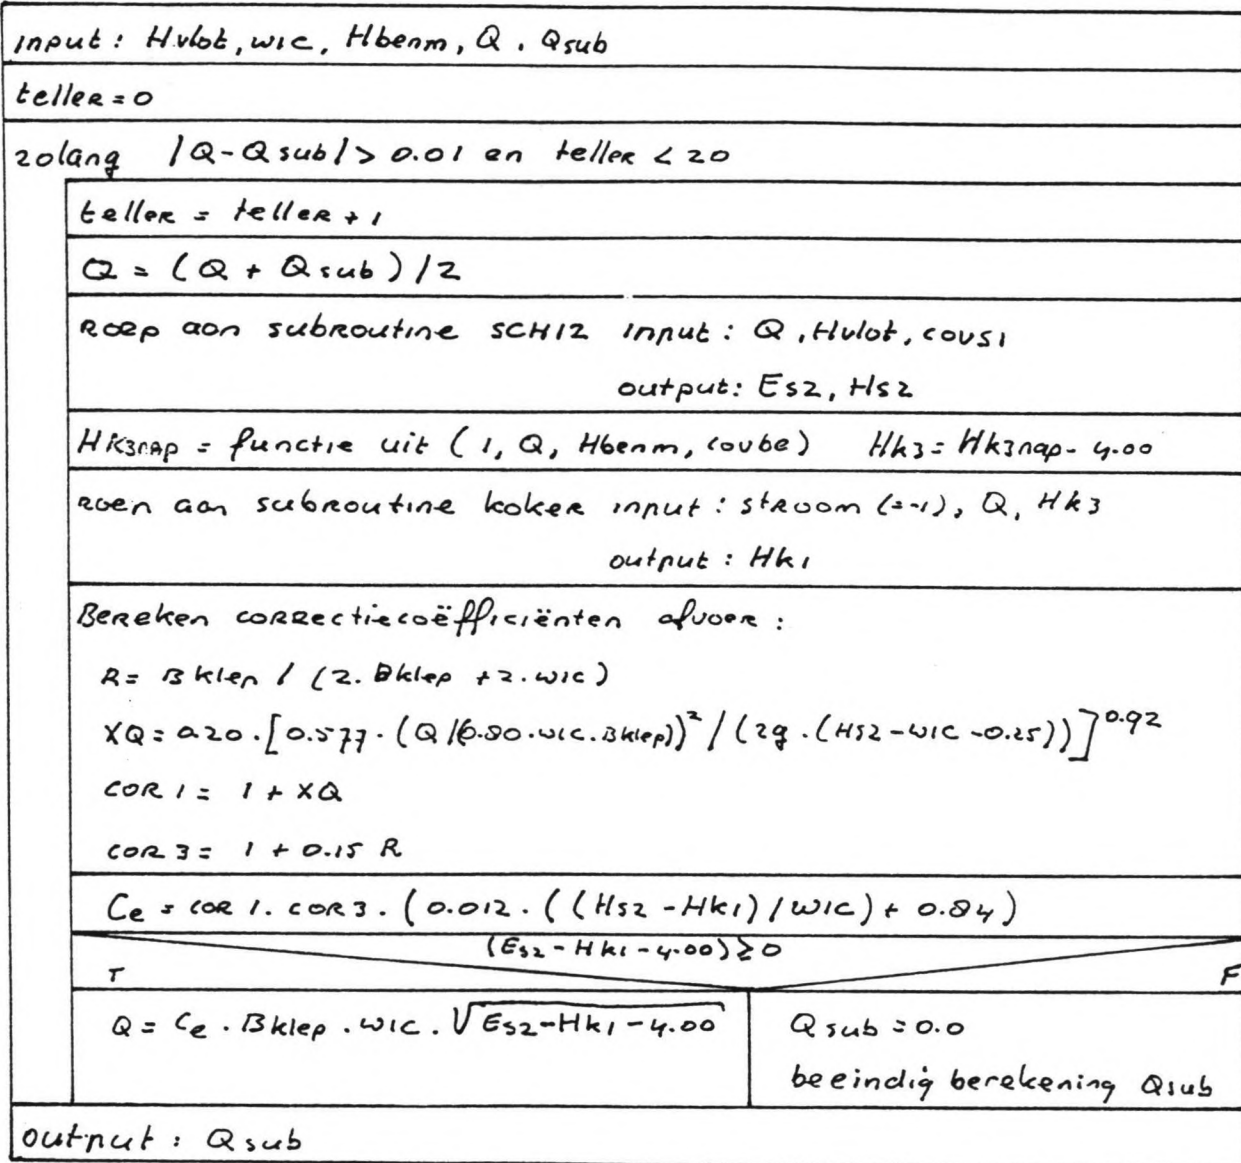 input: Hvlot, wic, Hbenm, Q, Qsub
teller = 0
zolang |Q-Qsub| > 0.01 en teller < 20
teller = teller + 1
Q = (Q + Qsub)/2
Roep aan subroutine SCH12 input: Q, Hvlot, covs1
output: Es2, Hs2
Hk3nap = functie uit (1, Q, Hbenm, covbe) Hk3 = Hk3nap - 4.00
Roep aan subroutine koker input: stroom (=-1), Q, Hk3
output: Hk1
Bereken correctiecoëfficiënten afvoer:
R = Bklep / (2. Bklep + 2. wic)
XQ = 0.20 . [0.577 . (Q/(0.80 . wic . Bklep))² / (2g . (Hs2 - wic - 0.25))]^0.92
COR 1 = 1 + XQ
COR 3 = 1 + 0.15 R
Ce = COR 1 . COR 3 . (0.012 . ((Hs2 - Hk1) / wic) + 0.84)
(Es2 - Hk1 - 4.00) ≥ 0
T F
Q = Ce . Bklep . wic . √Es2-Hk1-4.00
Qsub = 0.0
beeindig berekening Qsub
output: Qsub